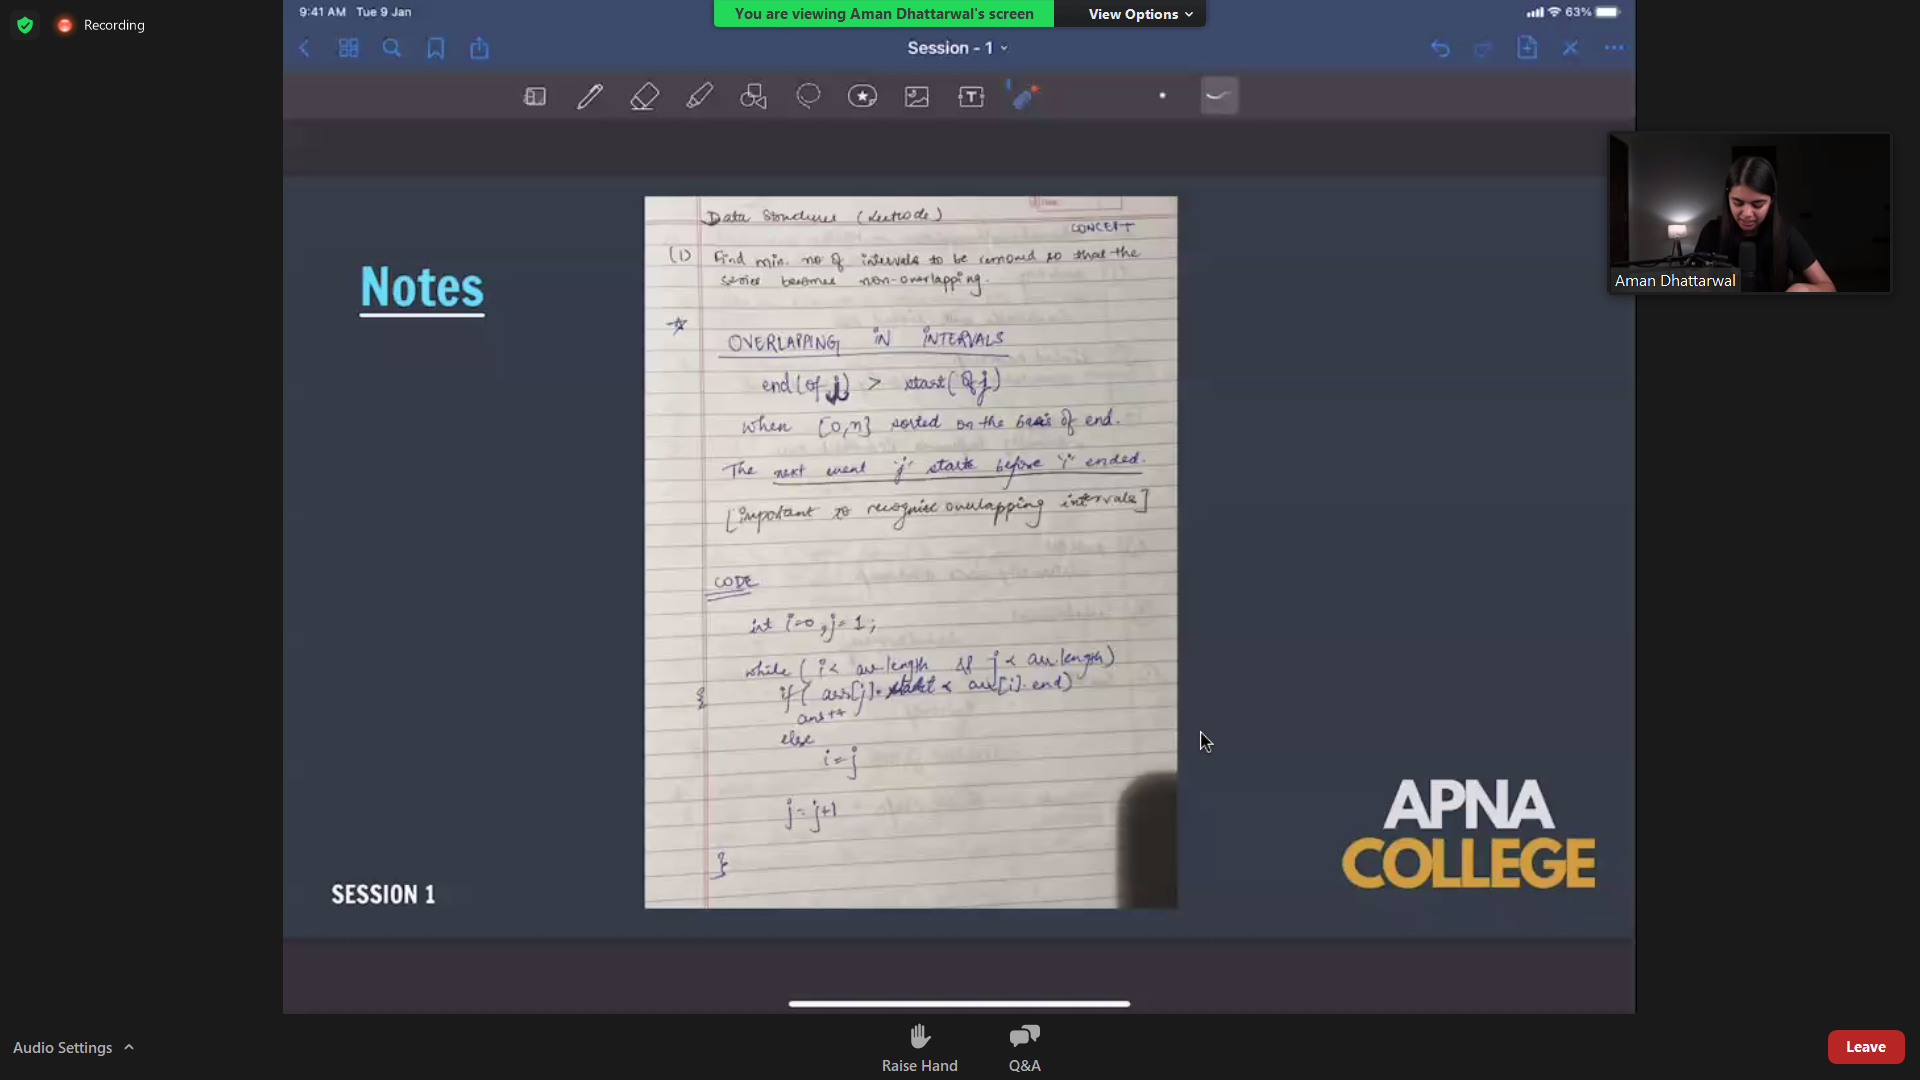 Recording
9:41 AM Tue 9 Jan
You are viewing Aman Dhattarwal's screen
View Options
63%
Session - 1
T
Notes
Data Structures (Leetcode)
CONCEPT
(1) Find min. no of intervals to be removed so that the
series becomes non-overlapping.
OVERLAPPING IN INTERVALS
end (of i) > start (of j)
when [0,n] sorted on the basis of end.
The next event 'j' starts before 'i' ended.
[important to recognise overlapping intervals]
CODE
int i=0, j=1;
while ( i< arr.length && j < arr.length)
{ if ( arr[j].start < arr[i].end)
ans++
else
i=j
j=j+1
}
Aman Dhattarwal
SESSION 1
APNA
COLLEGE
Audio Settings
Raise Hand
Q&A
Leave